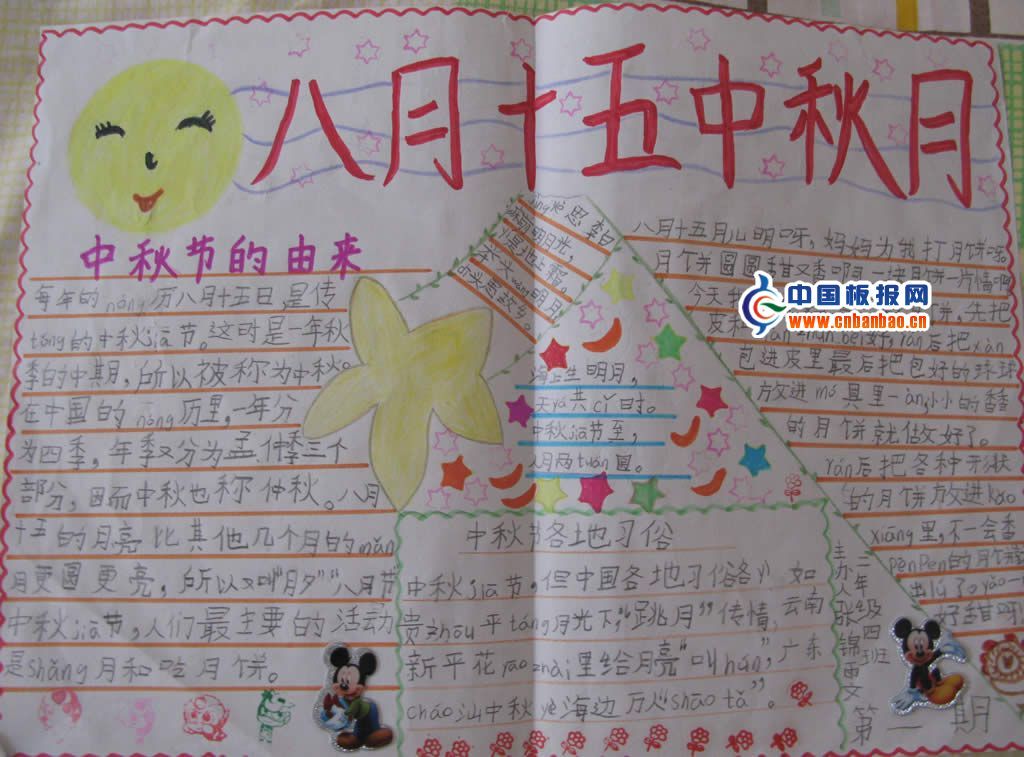 八月十五中秋月
中秋节的由来
每年的nóng历八月十五日是传
tǒng的中秋jiā节。这时是一年秋
季的中期，所以被称为中秋。
在中国的nóng历里，一年分
为四季，每季又分为孟、仲、季三个
部分，因而中秋也称仲秋。八月
十五的月亮比其他几个月的mǎn
月更圆更亮，所以又叫"月夕""八月节
中秋jiā节，人们最主要的活动
是shǎng月和吃月饼。
思 李白
明月光，
地上霜。
明月，
故乡。
海上生明月，
天yá共cǐ时。
中秋jiā节至，
人月两tuán圆。
八月十五月儿明呀，妈妈为我打月饼
月饼圆圆甜又香
今天
饼，先把
皮
后把
包进皮里最后把包好的
放进mó具里一 小小的香香
的月饼就做好了。
rán后把各种形状
的月饼放进kǎo
xiāng里，不一会香
pēnpēn的月饼
出lú了
好甜呀
中秋节各地习俗
中秋jiā节，但中国各地习俗各 如
贵zhōu平táng月光下，"跳月"传情，云南
新平花yāo 里给月亮"叫hún"，广东
cháo汕中秋 海边 "shāo tǎ"。
主办人张锦雨文
二年级四班
第一期
中国板报网
www.cnbanbao.cn